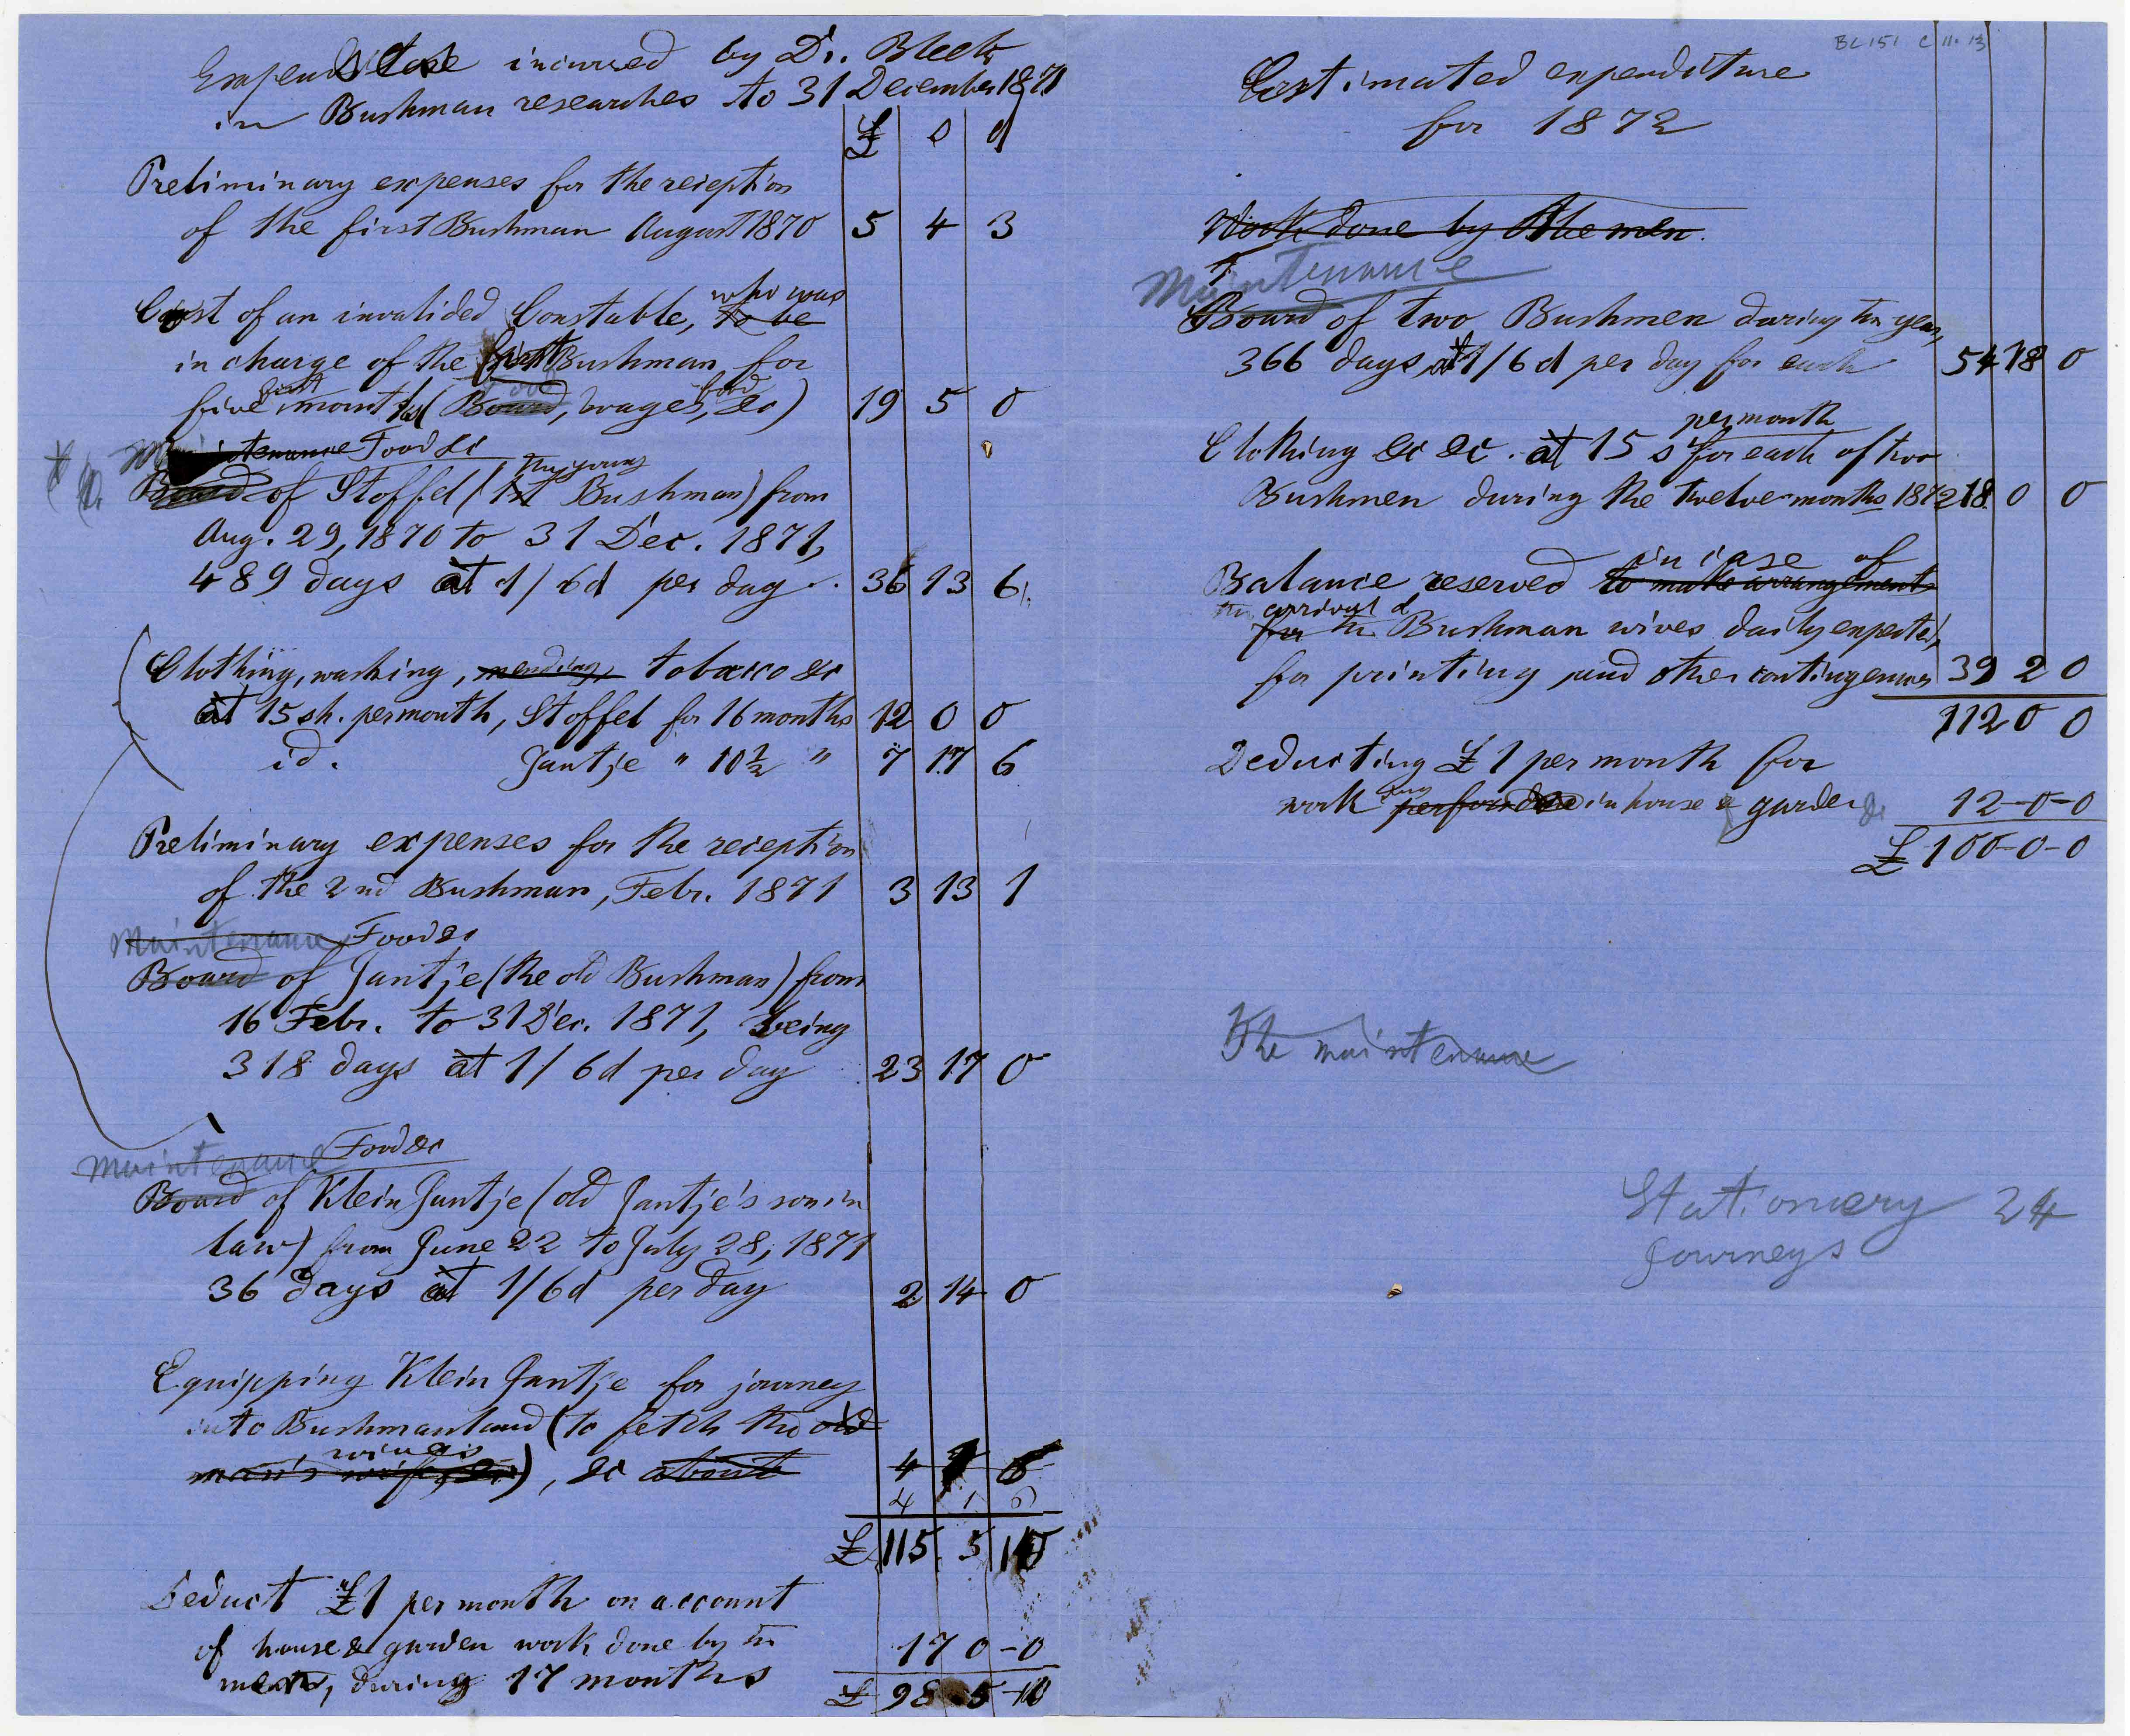 Expenditure incurred by Dr. Bleek
in Bushman researches to 31 December 1871
£ s d
Preliminary expenses for the reception
of the first Bushman August 1870 5 4 3
who was
Cost of an invalided Constable, to be
in charge of the first Bushman for
first food
five months (Board, wages, &c) 19 5 0
Maintenance Food &c
the young
Board of Stoffel (1st Bushman) from
Aug. 29, 1870 to 31 Dec. 1871,
489 days at 1/6d per day 36 13 6
Clothing, washing, mending, tobacco &c
at 15 sh. per month, Stoffel for 16 months 12 0 0
id. Jantje " 10½ " 7 17 6
Preliminary expenses for the reception
of the 2nd Bushman, Febr. 1871 3 13 1
Maintenance Food &c
Board of Jantje (the old Bushman) from
16 Febr. to 31 Dec. 1871, being
318 days at 1/6d per day 23 17 0
Maintenance Food &c
Board of Klein Jantje (old Jantje's son in
law) from June 22 to July 28, 1871
36 days at 1/6d per day 2 14 0
Equipping Klein Jantje for journey
into Bushmanland (to fetch the old
wives
man's wife, &c), &c about 4
4 1 6
£ 115 5 10
Deduct £1 per month on account
of house & garden work done by the
men, during 17 months 17 0-0
£ 98 5-10
BC 151 C 11. 13
Estimated expenditure
for 1872
Work done by the men.
Maintenance
Board of two Bushmen during the year,
366 days at 1/6d per day for each 54 18 0
per month
Clothing &c &c. at 15 s for each of two
Bushmen during the twelve months 1872 18 0 0
in case of
Balance reserved to make arrangements
the arrival of
for the Bushman wives daily expected,
for printing and other contingencies 39 2 0
112 0 0
Deducting £1 per month for
work performed in house & garden &c 12-0-0
£ 100-0-0
The maintenance
Stationery 24
Journeys